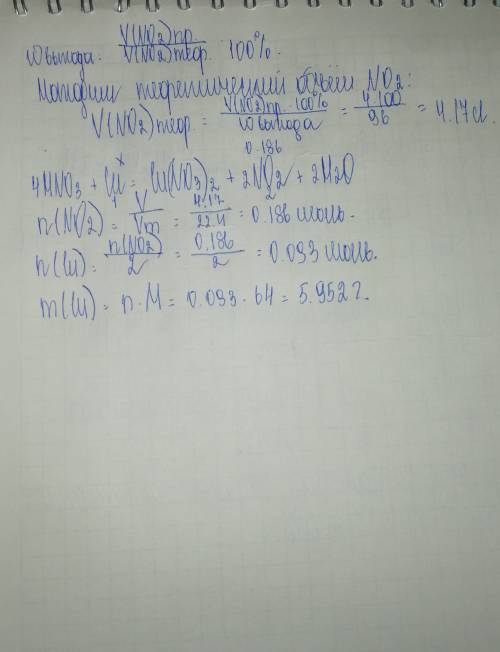 ωвыхода = V(NO2)пр / V(NO2)теор · 100%.
Находим теоретический объём NO2:
V(NO2)теор = V(NO2)пр · 100% / ωвыхода = 4·100 / 96 = 4.17л.
0.186
x
4HNO3 + Cu = Cu(NO3)2 + 2NO2 + 2H2O
1 2
n(NO2) = V / Vm = 4.17 / 22.4 = 0.186 моль.
n(Cu) = n(NO2) / 2 = 0.186 / 2 = 0.093 моль.
m(Cu) = n·M = 0.093 · 64 = 5.952г.